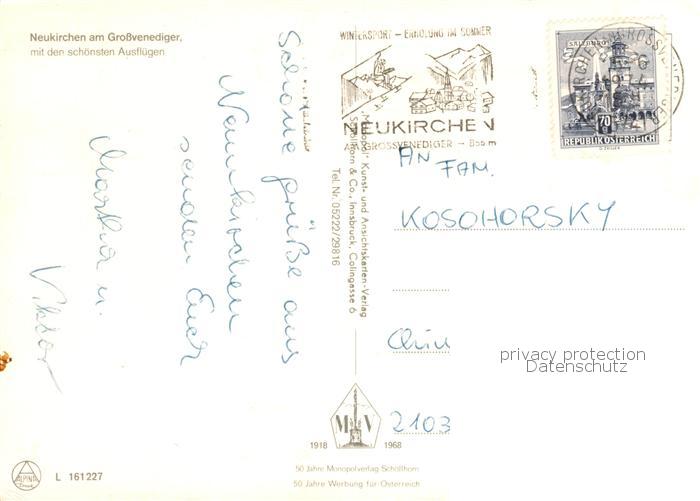 Neukirchen am Großvenediger,
mit den schönsten Ausflügen
Schöne Grüße aus
Neunkirchen
senden Euch
Martha u.
Viktor
WINTERSPORT – ERHOLUNG IM SOMMER
NEUKIRCHEN
AM GROSSVENEDIGER – 856 m
SALZBURG
70
REPUBLIK ÖSTERREICH
"Monopol" Kunst- und Ansichtskarten-Verlag
Schöllhorn & Co., Innsbruck, Colingasse 6
Tel. Nr. 05222/29816
AN
FAM.
KOSOHORSKY
2103
privacy protection
Datenschutz
M V
1918 1968
50 Jahre Monopolverlag Schöllhorn
50 Jahre Werbung für Österreich
ALPINA
L 161227